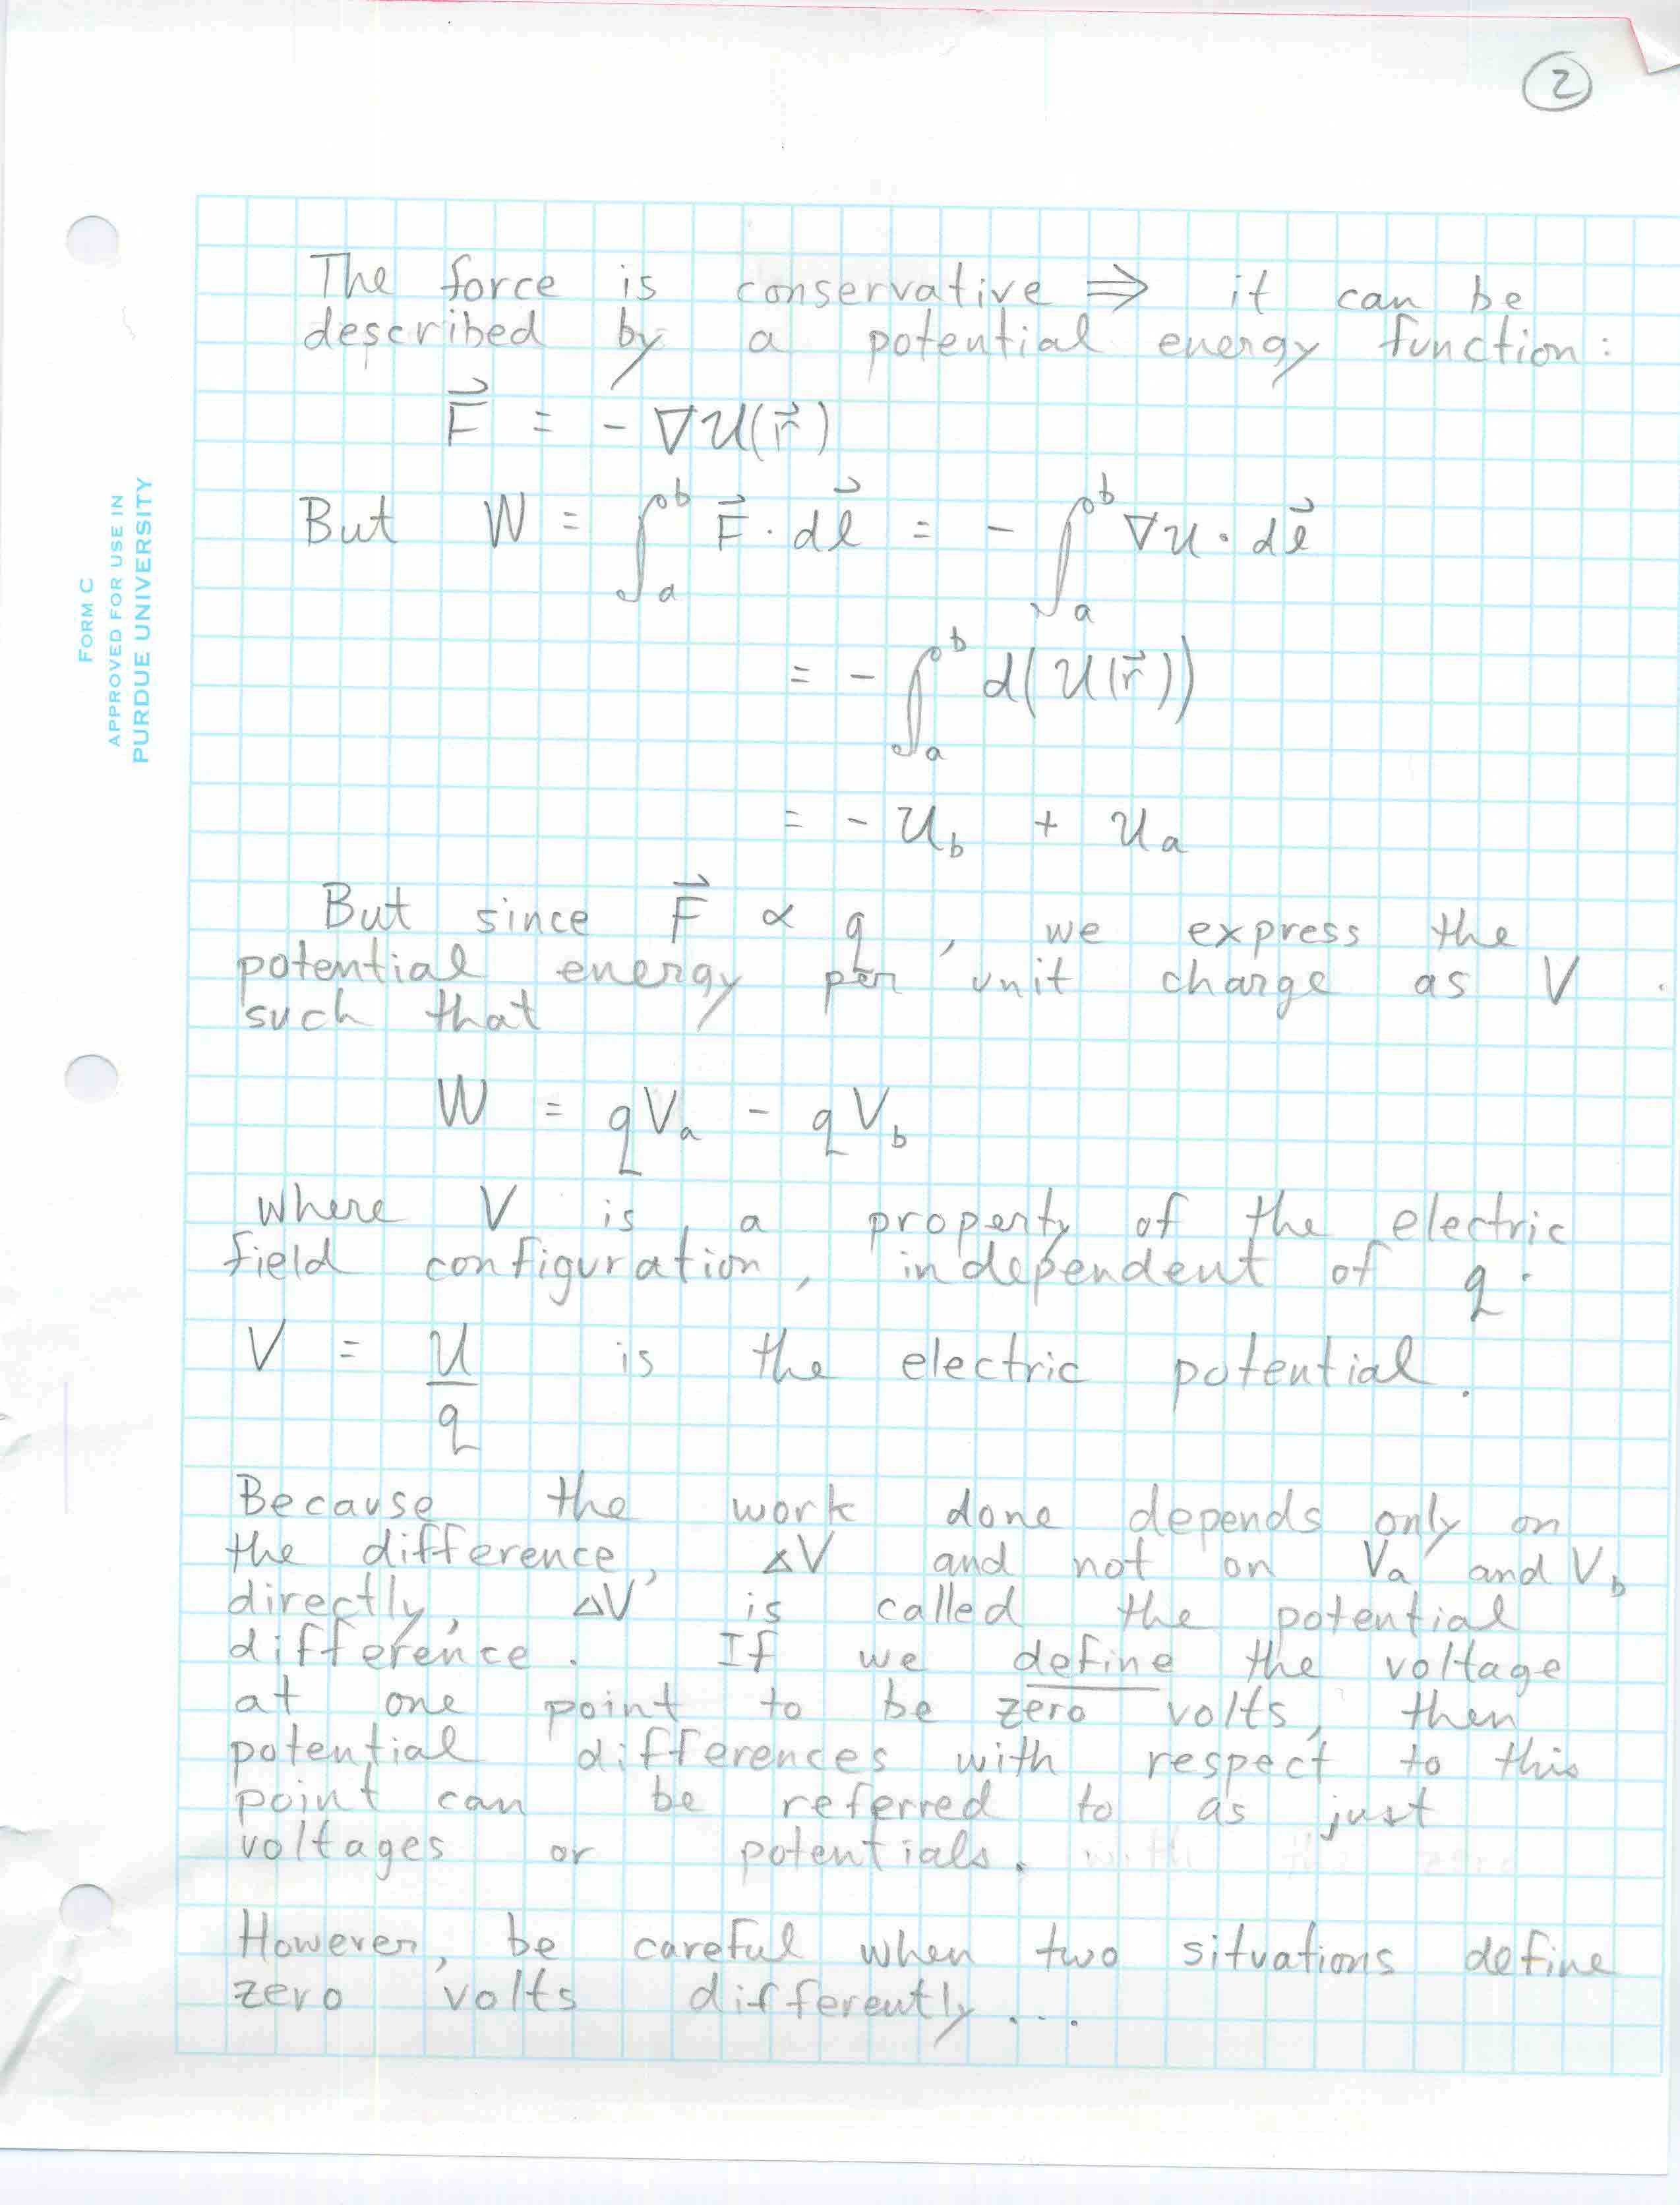 2
FORM C
APPROVED FOR USE IN
PURDUE UNIVERSITY
The force is conservative ⇒ it can be
described by a potential energy function:
F⃗ = - ∇U(r⃗)
But W = ∫ₐᵇ F⃗ · dℓ⃗ = - ∫ₐᵇ ∇U · dℓ⃗
= - ∫ₐᵇ d(U(r⃗))
= - U_b + U_a
But since F⃗ ∝ q, we express the
potential energy per unit charge as V.
such that
W = qV_a - qV_b
where V is a property of the electric
field configuration, independent of q.
V = U/q is the electric potential.
Because the work done depends only on
the difference, ΔV and not on V_a and V_b
directly, ΔV is called the potential
difference. If we define the voltage
at one point to be zero volts, then
potential differences with respect to this
point can be referred to as just
voltages or potentials.
However, be careful when two situations define
zero volts differently....